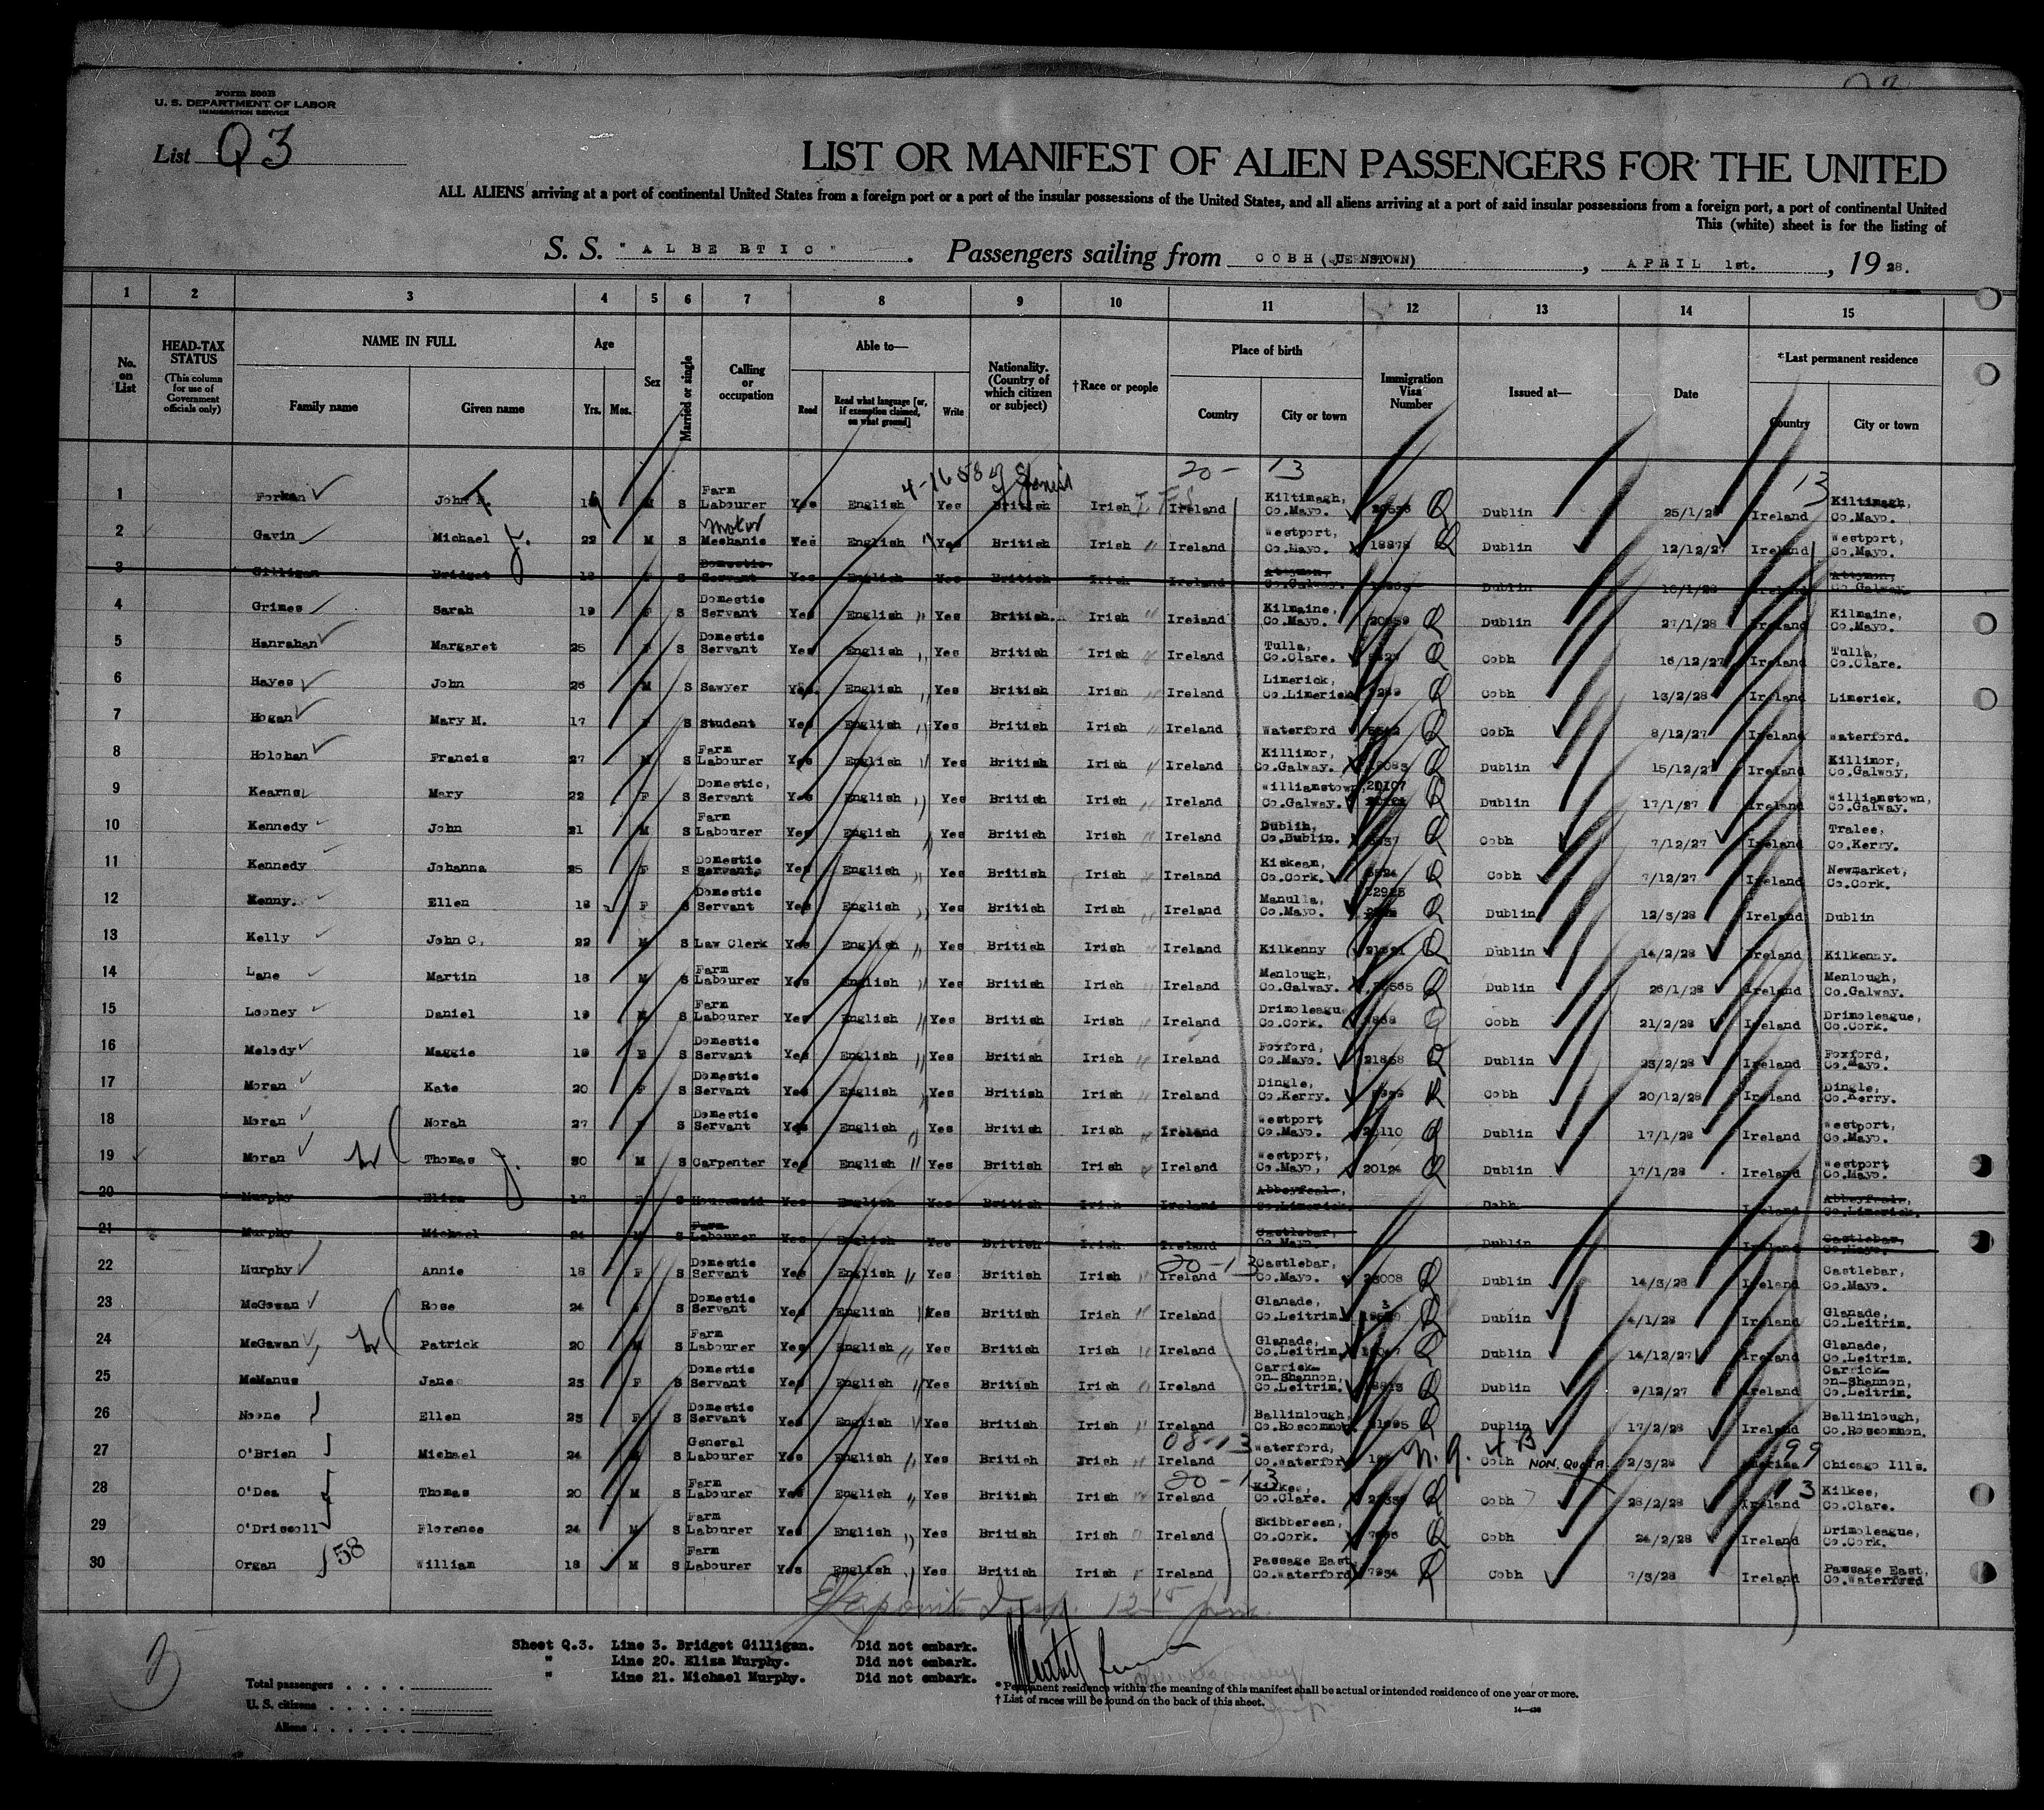 Form 500B
U. S. DEPARTMENT OF LABOR
IMMIGRATION SERVICE
List Q3
LIST OR MANIFEST OF ALIEN PASSENGERS FOR THE UNITED
ALL ALIENS arriving at a port of continental United States from a foreign port or a port of the insular possessions of the United States, and all aliens arriving at a port of said insular possessions from a foreign port, a port of continental United
This (white) sheet is for the listing of
S. S. "ALBERTIC". Passengers sailing from COBH (QUEENSTOWN), APRIL 1st., 1928.
1 2 3 4 5 6 7 8 9 10 11 12 13 14 15
No. on List
HEAD-TAX STATUS (This column for use of Government officials only)
NAME IN FULL
Family name Given name
Age Yrs. Mos.
Sex
Married or single
Calling or occupation
Able to—
Read Read what language [or, if exemption claimed, on what ground] Write
Nationality. (Country of which citizen or subject)
†Race or people
Place of birth
Country City or town
Immigration Visa Number
Issued at—
Date
*Last permanent residence
Country City or town
20- 13 13
1 Forkan John Farm Labourer Yes English Yes British Irish Ireland Kiltimagh, Co.Mayo. Q Dublin 25/1/28 Ireland Kiltimagh, Co.Mayo.
2 Gavin Michael J. 22 M S Motor Mechanic Yes English Yes British Irish Ireland Westport, Co.Mayo. 18878 Q Dublin 12/12/27 Ireland Westport, Co.Mayo.
3 Gilligan Bridget 18 F S Domestic Servant Yes English Yes British Irish Ireland Attymon, Co.Galway. Dublin Ireland Attymon, Co.Galway.
4 Grimes Sarah 19 F S Domestic Servant Yes English Yes British Irish Ireland Kilmaine, Co.Mayo. Q Dublin 27/1/28 Ireland Kilmaine, Co.Mayo.
5 Hanrahan Margaret 25 F S Domestic Servant Yes English Yes British Irish Ireland Tulla, Co.Clare. Q Cobh 16/12/27 Ireland Tulla, Co.Clare.
6 Hayes John 26 M S Sawyer Yes English Yes British Irish Ireland Limerick, Co.Limerick Q Cobh 13/2/28 Ireland Limerick.
7 Hogan Mary M. 17 F S Student Yes English Yes British Irish Ireland Waterford Q Cobh 8/12/27 Ireland Waterford.
8 Holohan Francis 27 M S Farm Labourer Yes English Yes British Irish Ireland Killimor, Co.Galway. Q Dublin 15/12/27 Ireland Killimor, Co.Galway,
9 Kearns Mary 22 F S Domestic, Servant Yes English Yes British Irish Ireland Williamstown, Co.Galway. 20107 Q Dublin 17/1/27 Ireland Williamstown, Co.Galway.
10 Kennedy John 21 M S Farm Labourer Yes English Yes British Irish Ireland Dublin, Co.Dublin. Q Cobh 7/12/27 Ireland Tralee, Co.Kerry.
11 Kennedy Johanna 25 F S Domestic Servant. Yes English Yes British Irish Ireland Kiskeam, Co.Cork. Q Cobh 7/12/27 Ireland Newmarket, Co.Cork.
12 Kenny. Ellen 18 F S Domestic Servant Yes English Yes British Irish Ireland Manulla, Co.Mayo. 22925 Q Dublin 12/3/28 Ireland Dublin
13 Kelly John C. 22 M S Law Clerk Yes English Yes British Irish Ireland Kilkenny Q Dublin 14/2/28 Ireland Kilkenny.
14 Lane Martin 18 M S Farm Labourer Yes English Yes British Irish Ireland Menlough, Co.Galway. Q Dublin 26/1/28 Ireland Menlough, Co.Galway.
15 Looney Daniel 19 M S Farm Labourer Yes English Yes British Irish Ireland Drimoleague Co.Cork. Q Cobh 21/2/28 Ireland Drimoleague, Co.Cork.
16 Melody Maggie 19 F S Domestic Servant Yes English Yes British Irish Ireland Foxford, Co.Mayo. 21868 Q Dublin 23/2/28 Ireland Foxford, Co.Mayo.
17 Moran Kate 20 F S Domestic Servant Yes English Yes British Irish Ireland Dingle, Co.Kerry. Q Cobh 20/12/28 Ireland Dingle, Co.Kerry.
18 Moran Norah 27 F S Domestic Servant Yes English Yes British Irish Ireland Westport Co.Mayo. 20110 Q Dublin 17/1/28 Ireland Westport, Co.Mayo.
19 Moran Thomas J. 30 M S Carpenter Yes English Yes British Irish Ireland Westport, Co.Mayo, 20124 Q Dublin 17/1/28 Ireland Westport Co.Mayo.
20 Murphy Eliza 17 F S Housemaid Yes English Yes British Irish Ireland Abbeyfeale, Co.Limerick. Cobh Ireland Abbeyfeale, Co.Limerick.
21 Murphy Michael 21 M S Farm Labourer Yes English Yes British Irish Ireland Castlebar, Co.Mayo. Dublin Ireland Castlebar, Co.Mayo.
20-13
22 Murphy Annie 18 F S Domestic Servant Yes English Yes British Irish Ireland Castlebar, Co.Mayo. 23008 Q Dublin 14/3/28 Ireland Castlebar, Co.Mayo.
23 McGowan Rose 24 F S Domestic Servant Yes English Yes British Irish Ireland Glanade, Co.Leitrim Q Dublin 4/1/28 Ireland Glanade, Co.Leitrim.
24 McGawan Patrick 20 M S Farm Labourer Yes English Yes British Irish Ireland Glanade, Co.Leitrim Q Dublin 14/12/27 Ireland Glanade, Co.Leitrim.
25 McManus Jane 23 F S Domestic Servant Yes English Yes British Irish Ireland Carrick-on-Shannon, Co.Leitrim. Q Dublin 9/12/27 Ireland Carrick-on-Shannon, Co.Leitrim.
26 Noone Ellen 23 F S Domestic Servant Yes English Yes British Irish Ireland Ballinlough, Co.Roscommon Q Dublin 17/2/28 Ireland Ballinlough, Co.Roscommon.
08-13 99
27 O'Brien Michael 24 M S General Labourer Yes English Yes British Irish Ireland Waterford, Co.Waterford N.Q. Cobh NON. QUOTA 2/3/28 America Chicago Ills.
20-13 13
28 O'Dea Thomas 20 M S Farm Labourer Yes English Yes British Irish Ireland Kilkee, Co.Clare. Q Cobh 28/2/28 Ireland Kilkee, Co.Clare.
29 O'Driscoll Florence 24 M S Farm Labourer Yes English Yes British Irish Ireland Skibbereen, Co.Cork. Q Cobh 24/2/28 Ireland Drimoleague, Co.Cork.
30 Organ 58 William 18 M S Farm Labourer Yes English Yes British Irish Ireland Passage East Co.Waterford Q Cobh 7/3/28 Ireland Passage East, Co.Waterford
Insp. 12 15 pm.
Sheet Q.3. Line 3. Bridget Gilligan. Did not embark.
" Line 20. Eliza Murphy. Did not embark.
" Line 21. Michael Murphy. Did not embark.
Total passengers
U. S. citizens
Aliens
* Permanent residence within the meaning of this manifest shall be actual or intended residence of one year or more.
† List of races will be found on the back of this sheet.